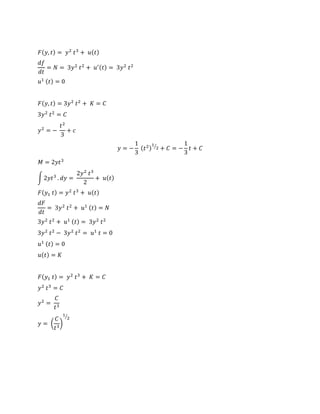 𝐹(𝑦,𝑡) = 𝑦² 𝑡³ + 𝑢(𝑡)
𝑑𝑓/𝑑𝑡 = 𝑁 = 3𝑦² 𝑡² + 𝑢′(𝑡) = 3𝑦² 𝑡²
𝑢¹ (𝑡) = 0
𝐹(𝑦,𝑡) = 3𝑦² 𝑡² + 𝐾 = 𝐶
3𝑦² 𝑡² = 𝐶
𝑦² = − 𝑡²/3 + 𝑐
𝑦 = − 1/3 (𝑡²)^1/2 + 𝐶 = − 1/3 𝑡 + 𝐶
𝑀 = 2𝑦𝑡³
∫ 2𝑦𝑡³ . 𝑑𝑦 = 2𝑦² 𝑡³/2 + 𝑢(𝑡)
𝐹(𝑦, 𝑡) = 𝑦² 𝑡³ + 𝑢(𝑡)
𝑑𝐹/𝑑𝑡 = 3𝑦² 𝑡² + 𝑢¹ (𝑡) = 𝑁
3𝑦² 𝑡² + 𝑢¹ (𝑡) = 3𝑦² 𝑡²
3𝑦² 𝑡² − 3𝑦² 𝑡² = 𝑢¹ 𝑡 = 0
𝑢¹ (𝑡) = 0
𝑢(𝑡) = 𝐾
𝐹(𝑦, 𝑡) = 𝑦² 𝑡³ + 𝐾 = 𝐶
𝑦² 𝑡³ = 𝐶
𝑦² = 𝐶/𝑡³
𝑦 = (𝐶/𝑡³)^1/2